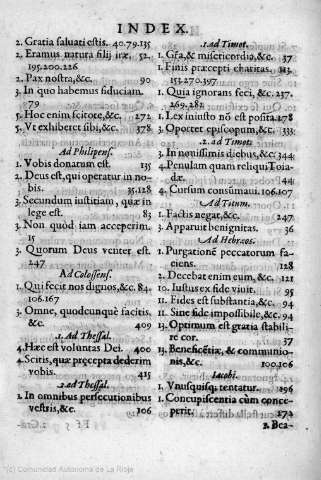 INDEX.
2. Gratia saluati estis. 40.79.135
2. Eramus natura filij iræ. 52.
195.200.226
2. Pax nostra,&c. 90
3. In quo habemus fiduciam.
79
5. Hoc enim scitote,&c. 272
5. Vt exhiberet sibi,&c. 378
Ad Philipens.
1. Vobis donatum est. 135
2. Deus est, qui operatur in no-
bis. 35.128
3. Secundum iustitiam, quæ in
lege est. 83
3. Non quòd iam acceperim.
15
3. Quorum Deus venter est.
247
Ad Colossens.
1. Qui fecit nos dignos,&c. 84.
106.167
3. Omne, quodcunquè facitis,
&c. 409
1. Ad Thessal.
4. Hæc est voluntas Dei. 400
4. Scitis, quæ præcepta dederim
vobis. 415
2. ad Thessal.
1. In omnibus persecutionibus
vestris,&c. 106
1. Ad Timot.
1. Gr̃a,& misericordio,&c. 37
1. Finis præcepti charitas. 113
153.270.397
1. Quia ignorans feci, &c. 237.
269.281
1. Lex iniusto nõ est posita. 278
3. Oportet episcopum,&c. 333
2. ad Timot.
3. In nouissimis diebus,&c. 344
4. Penulam quam reliqui Troia-
dæ. 44
4. Cursum consũmaui. 106.107
Ad Titum.
1. Factis negat,&c. 247
3. Apparuit benignitas. 36
Ad Hebræos.
1. Purgationẽ peccatorum fa-
ciens. 128
2. Decebat enim eum, &c. 121
10. Iustus ex fide viuit. 95
11. Fides est substantia,&c. 94
11. Sine fide impossibile,&c. 94
13. Optimum est gratia stabili-
re cor. 37
13. Beneficẽtiæ, & communio-
nis,&c. 100.106
Iacobi.
1. Vnusquisq; tentatur. 296
1. Concupiscentia cùm conce-
perit. 272
2. Bea-
(c) Comunidad Autonoma de La Rioja